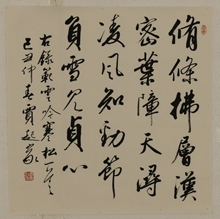 脩條拂層漢
密葉障天潯
凌風知勁節
負雪見貞心
右錄範雲咏寒松一首
己丑仲春賈起家